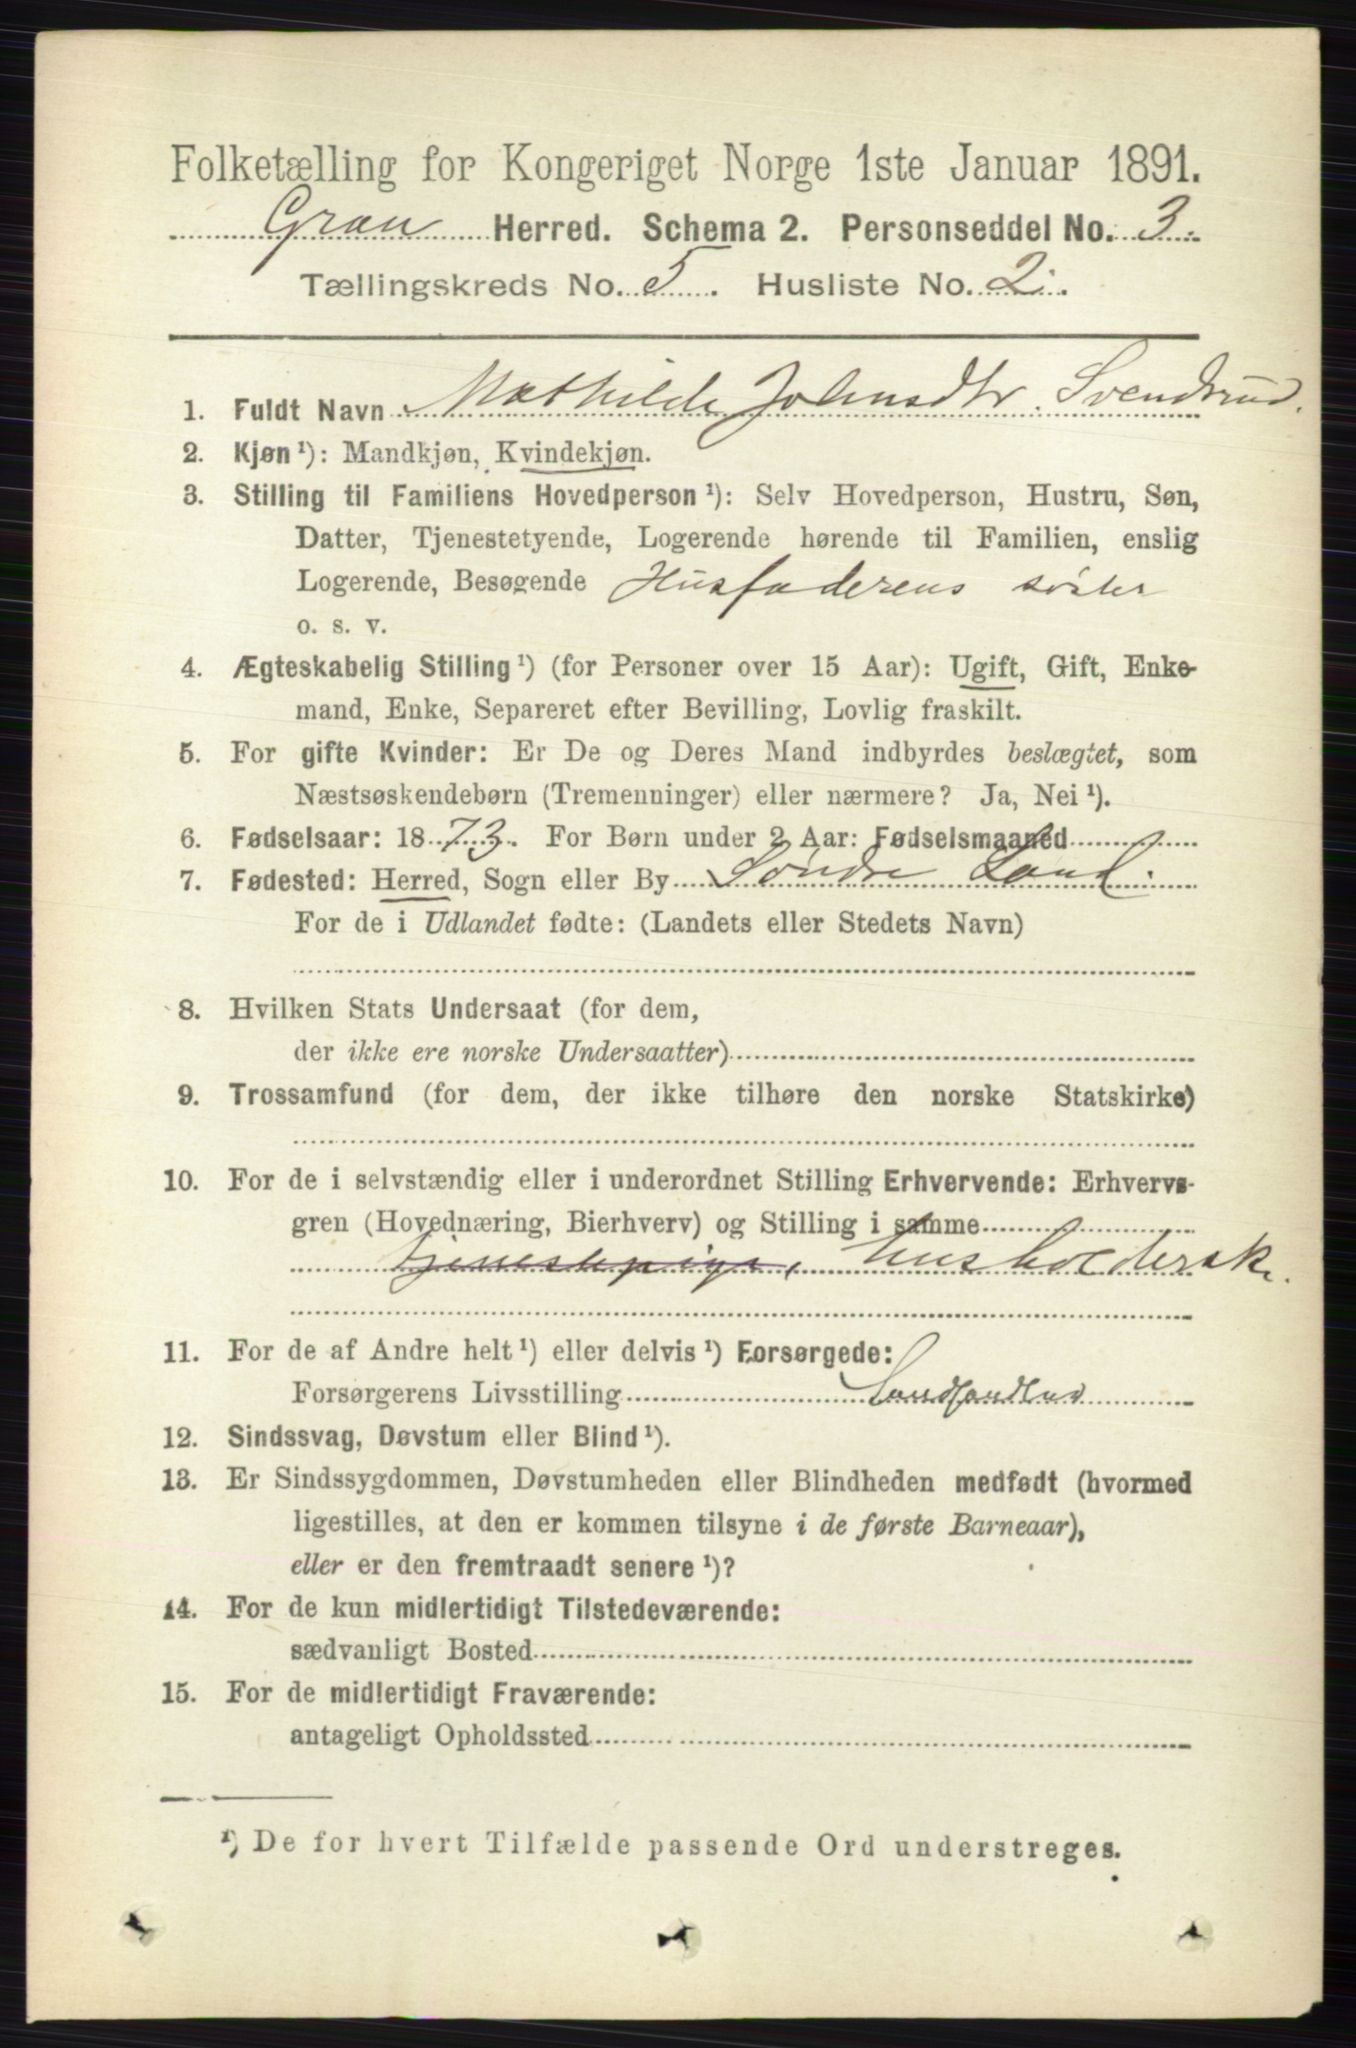 Folketælling for Kongeriget Norge 1ste Januar 1891.
Gran Herred. Schema 2. Personseddel No. 3.
Tællingskreds No. 5. Husliste No. 2.
1. Fuldt Navn Mathilde Johnsdtr. Svendsrud.
2. Kjøn ¹): Mandkjøn, Kvindekjøn.
3. Stilling til Familiens Hovedperson ¹): Selv Hovedperson, Hustru, Søn,
Datter, Tjenestetyende, Logerende hørende til Familien, enslig
Logerende, Besøgende Husfaderens søster
o. s. v.
4. Ægteskabelig Stilling ¹) (for Personer over 15 Aar): Ugift, Gift, Enke-
mand, Enke, Separeret efter Bevilling, Lovlig fraskilt.
5. For gifte Kvinder: Er De og Deres Mand indbyrdes beslægtet, som
Næstsøskendebørn (Tremenninger) eller nærmere? Ja, Nei ¹).
6. Fødselsaar: 1873. For Børn under 2 Aar: Fødselsmaaned
7. Fødested: Herred, Sogn eller By Søndre Land.
For de i Udlandet fødte: (Landets eller Stedets Navn)
8. Hvilken Stats Undersaat (for dem,
der ikke ere norske Undersaatter)
9. Trossamfund (for dem, der ikke tilhøre den norske Statskirke)
10. For de i selvstændig eller i underordnet Stilling Erhvervende: Erhvervs-
gren (Hovednæring, Bierhverv) og Stilling i samme
tjenestepige, husholderske.
11. For de af Andre helt ¹) eller delvis ¹) Forsørgede:
Forsørgerens Livsstilling Landhandler
12. Sindssvag, Døvstum eller Blind ¹).
13. Er Sindssygdommen, Døvstumheden eller Blindheden medfødt (hvormed
ligestilles, at den er kommen tilsyne i de første Barneaar),
eller er den fremtraadt senere ¹)?
14. For de kun midlertidigt Tilstedeværende:
sædvanligt Bosted
15. For de midlertidigt Fraværende:
antageligt Opholdssted
¹) De for hvert Tilfælde passende Ord understreges.